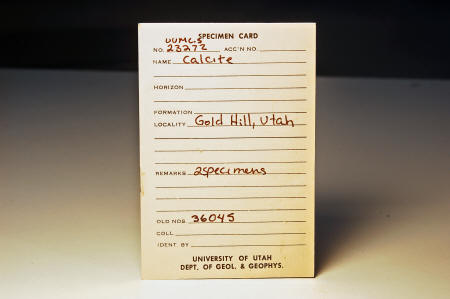 SPECIMEN CARD
UUMG.S
NO. 23272 ACC'N NO.
NAME Calcite
HORIZON
FORMATION
LOCALITY Gold Hill, Utah
REMARKS 2 specimens
OLD NOS. 36045
COLL.
IDENT. BY
UNIVERSITY OF UTAH
DEPT. OF GEOL. & GEOPHYS.